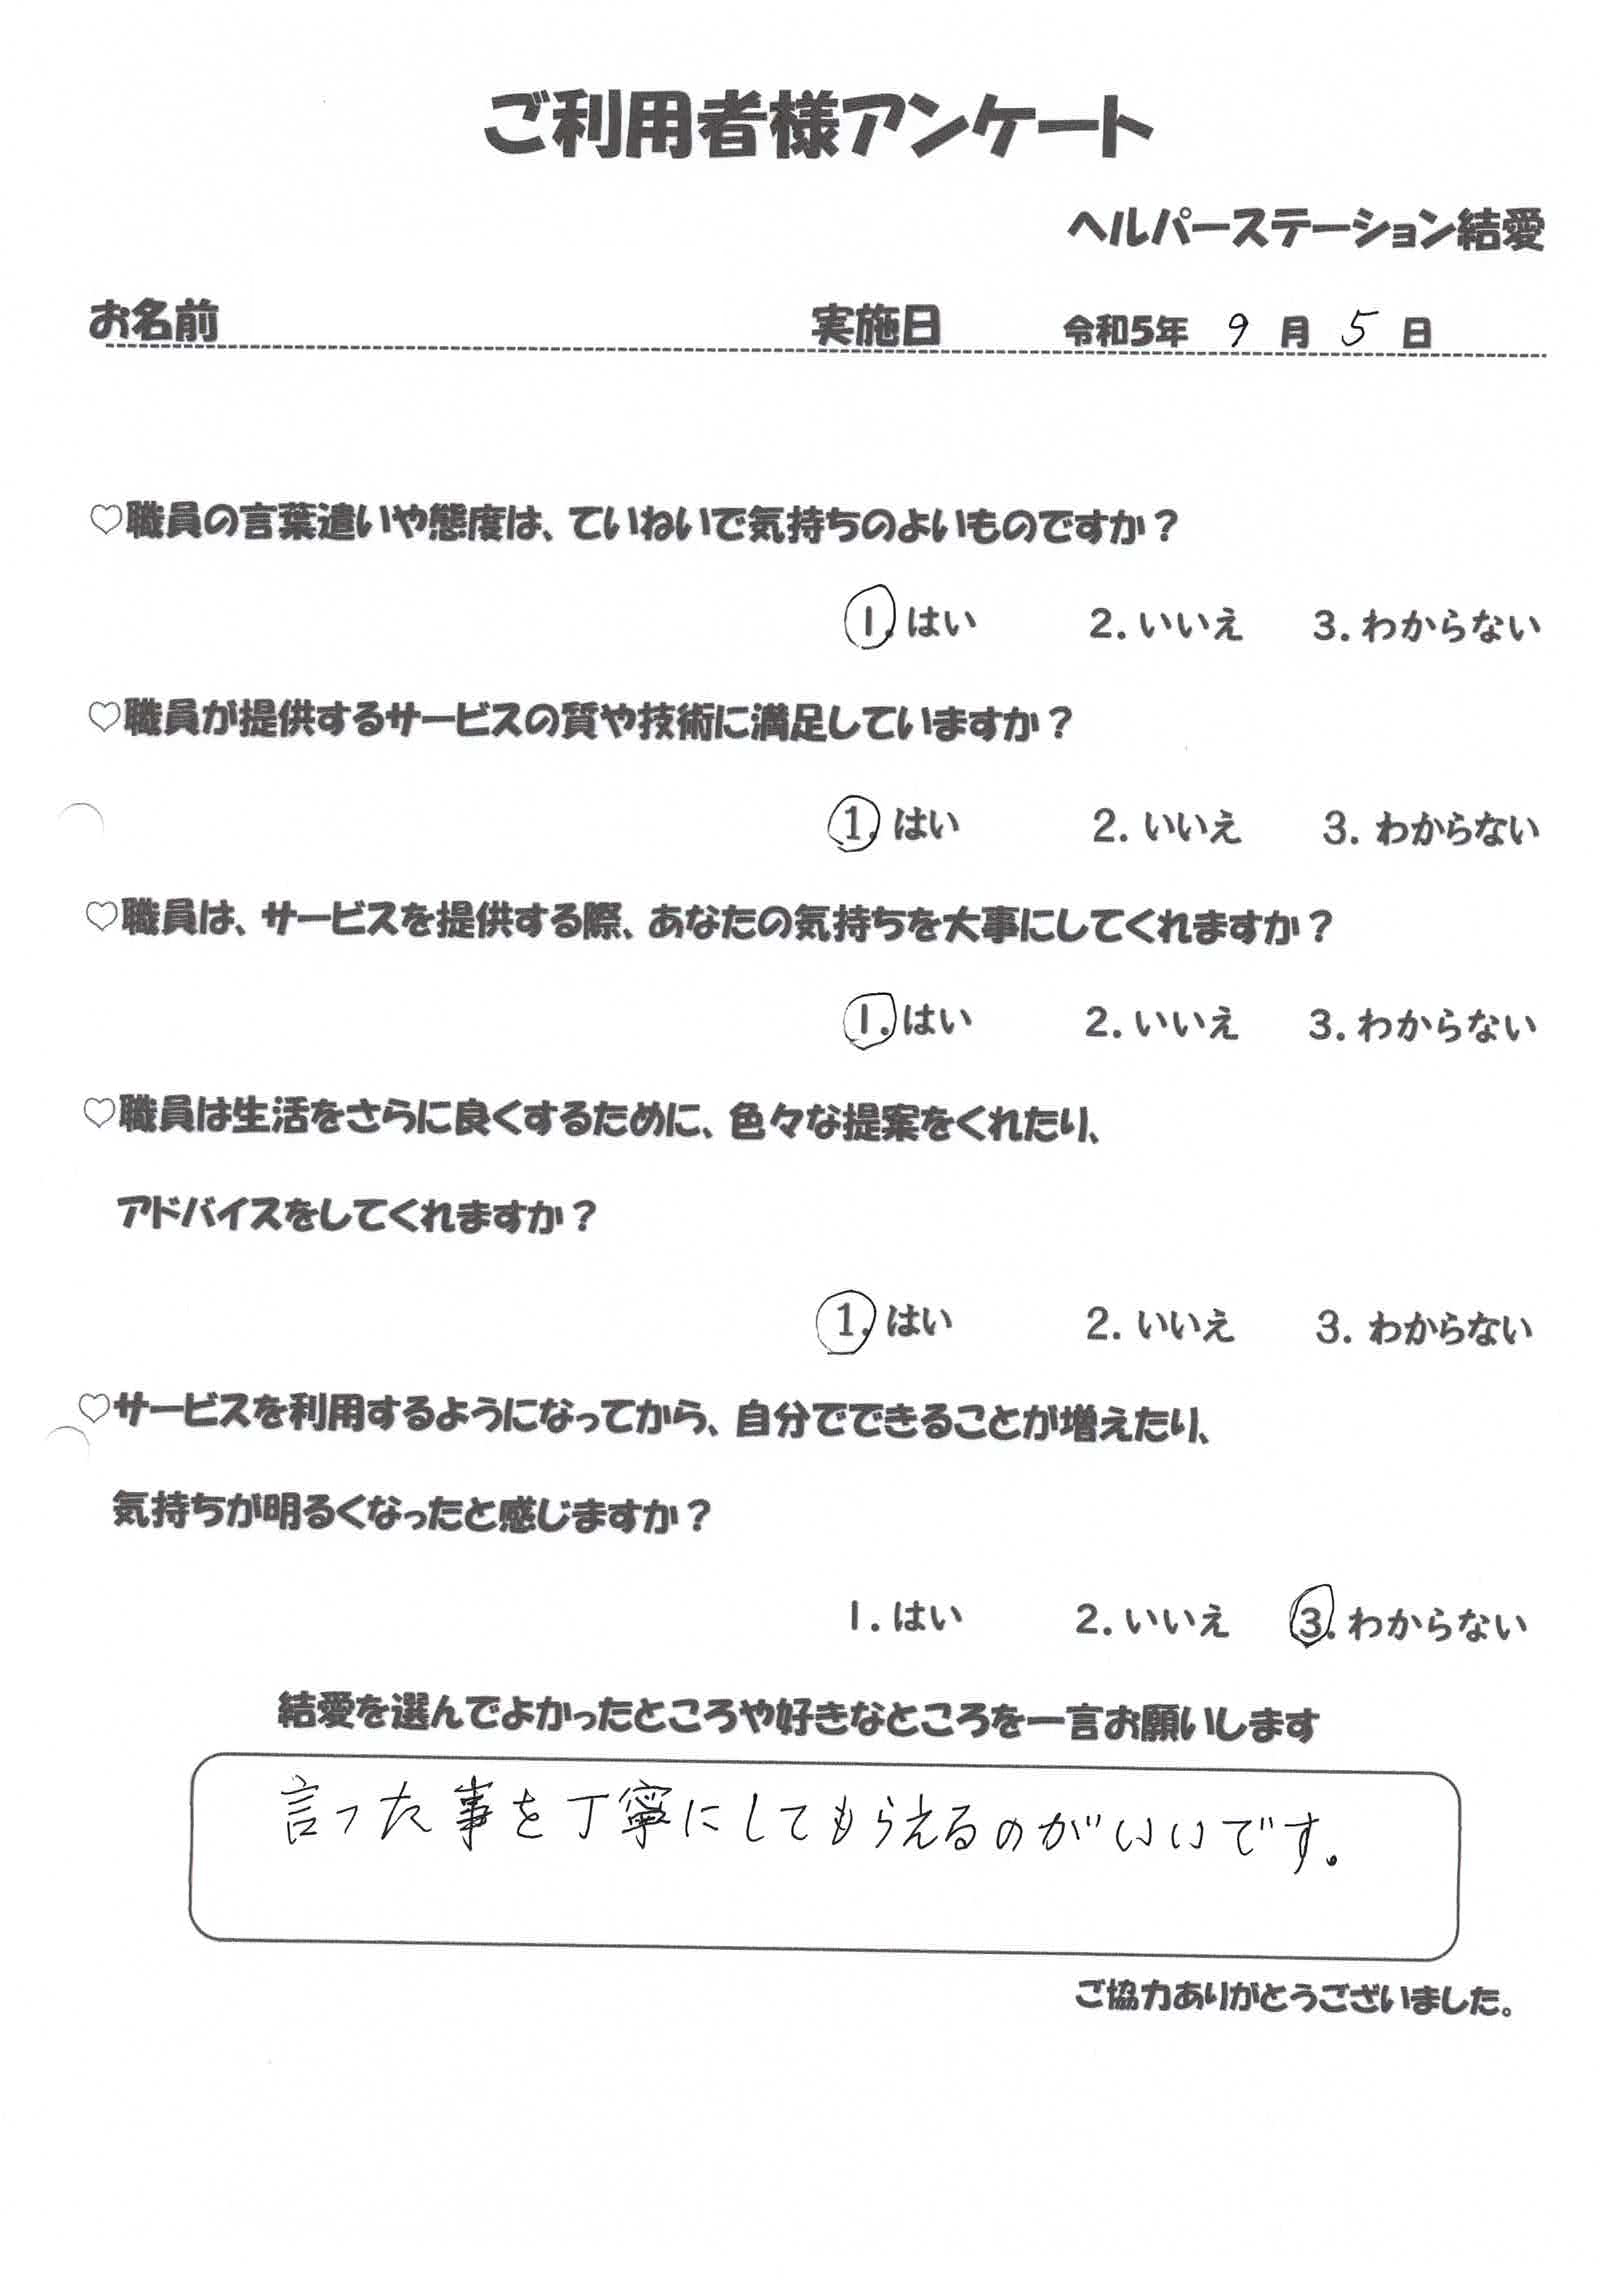 ご利用者様アンケート
ヘルパーステーション結愛
お名前 実施日 令和5年 9 月 5 日
♡職員の言葉遣いや態度は、ていねいで気持ちのよいものですか？
1. はい 2. いいえ 3. わからない
♡職員が提供するサービスの質や技術に満足していますか？
1. はい 2. いいえ 3. わからない
♡職員は、サービスを提供する際、あなたの気持ちを大事にしてくれますか？
1. はい 2. いいえ 3. わからない
♡職員は生活をさらに良くするために、色々な提案をくれたり、
アドバイスをしてくれますか？
1. はい 2. いいえ 3. わからない
♡サービスを利用するようになってから、自分でできることが増えたり、
気持ちが明るくなったと感じますか？
1. はい 2. いいえ 3. わからない
結愛を選んでよかったところや好きなところを一言お願いします
言った事を丁寧にしてもらえるのがいいです。
ご協力ありがとうございました。